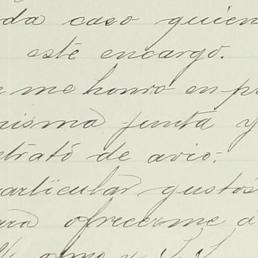 da caso quien
esté encargo.
me honro en p
misma junta y
trató de avio.
articular gustos
ofrecerme a
como y S. S.